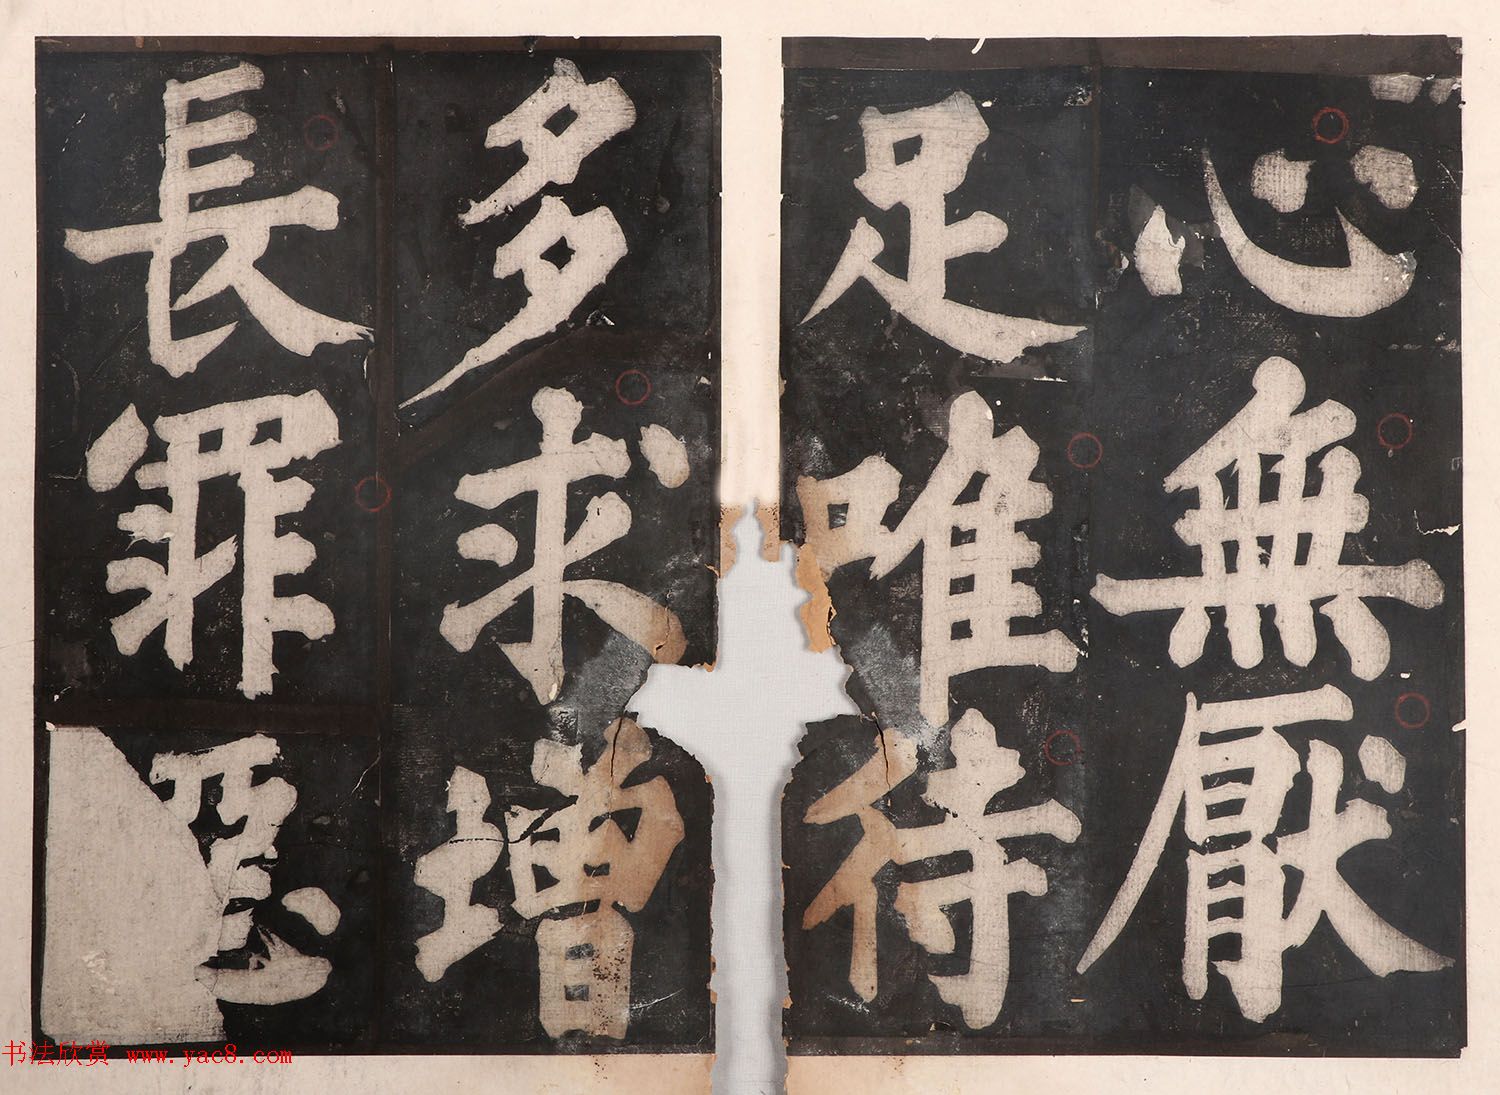 心無厭
足唯待
多求增
長罪惡
书法欣赏 www.yac8.com